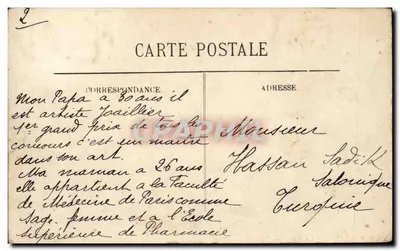 2
CARTE POSTALE
CORRESPONDANCE
ADRESSE
Mon Papa a 30 ans il
est artiste Joaillier
1er grand prix de tous les
concours c'est un maître
dans son art.
Ma maman a 26 ans
elle appartient a la Faculté
de Médecine de Paris comme
Sage femme et a l'Ecole
supérieure de Pharmacie
Monsieur
Hassan Sadik
Salonique
Turquie